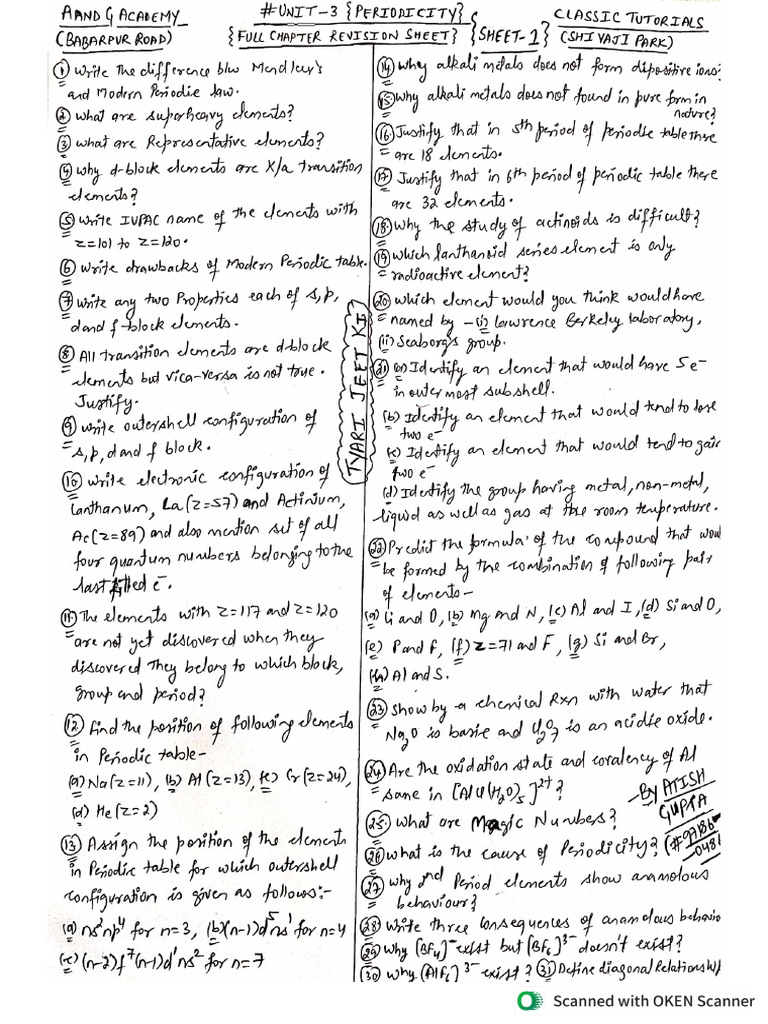 A AND G ACADEMY
(BABARPUR ROAD)
#UNIT-3 {PERIODICITY}
{FULL CHAPTER REVISION SHEET}
{SHEET-1}
CLASSIC TUTORIALS
(SHIVAJI PARK)
① Write the difference b/w Mendleev's
and Modern Periodic law.
② What are superheavy elements?
③ What are Representative elements?
④ Why d-block elements are k/a transition
elements?
⑤ Write IUPAC name of the elements with
Z=101 to Z=120.
⑥ Write drawbacks of Modern Periodic table.
⑦ Write any two Properties each of s, p,
d and f-block elements.
⑧ All transition elements are d-block
elements but vica-versa is not true.
Justify.
⑨ Write outershell configuration of
s, p, d and f block.
⑩ Write electronic configuration of
Lanthanum, La(Z=57) and Actinium,
Ac(Z=89) and also mention set of all
four quantum numbers belonging to the
last filled e⁻.
⑪ The elements with Z=117 and Z=120
are not yet discovered when they
discovered They belong to which block,
group and period?
⑫ Find the position of following elements
in Periodic table-
(a) Na(Z=11), (b) Al(Z=13), (c) Cr(Z=24),
(d) He(Z=2)
⑬ Assign the position of the elements
in Periodic table for which outershell
configuration is given as follows:-
(a) ns²np⁴ for n=3, (b) (n-1)d⁵ns¹ for n=4
(c) (n-2)f⁷(n-1)d¹ns² for n=7
TYARI JEET KI
⑭ Why alkali metals does not form dipositive ions?
⑮ Why alkali metals does not found in pure form in
nature?
⑯ Justify that in 5th period of periodic table there
are 18 elements.
⑰ Justify that in 6th period of periodic table there
are 32 elements.
⑱ Why the study of actinoids is difficult?
⑲ Which lanthanoid series element is only
radioactive element?
⑳ Which element would you think would have
named by - (i) Lawrence Berkeley laboratory,
(ii) Seaborg's group.
㉑ (a) Identify an element that would have 5e⁻
in outermost subshell.
(b) Identify an element that would tend to lose
two e⁻
(c) Identify an element that would tend to gain
two e⁻
(d) Identify the group having metal, non-metal,
liquid as well as gas at the room temperature.
㉒ Predict the formula of the compound that woul
be formed by the combination of following pair
of elements-
(a) Li and O, (b) Mg and N, (c) Al and I, (d) Si and O,
(e) P and F, (f) Z=71 and F, (g) Si and Br,
(h) Al and S.
㉓ Show by a chemical Rxn with water that
Na₂O is basic and Cl₂O₇ is an acidic oxide.
㉔ Are the oxidation state and covalency of Al
same in [AlCl(H₂O)₅]²⁺?
㉕ What are Magic Numbers?
㉖ What is the cause of Periodicity?
㉗ Why 2nd Period elements show anamolous
behaviour?
㉘ Write three consequences of anamolous behavio
㉙ Why [BF₄]⁻ exist but [BF₆]³⁻ doesn't exist?
㉚ Why [AlF₆]³⁻ exist? ㉛ Define diagonal Relationship
By ATISH
GUPTA
Scanned with OKEN Scanner